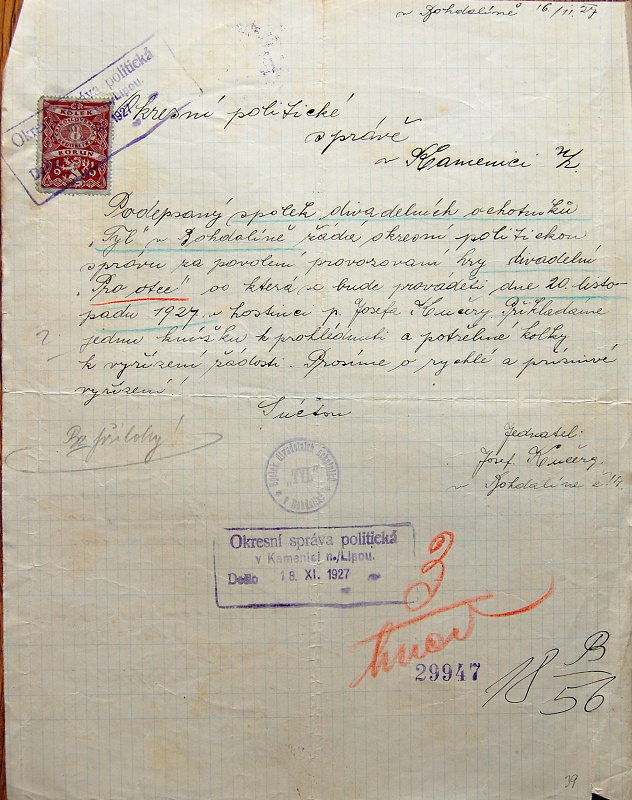 v Bohdalíně 16/11.27
Okresní správa politická
n./Lipou.
1927
KOLEK
8
KORUN
Okresní politické
správě
v Kamenici n/L.
Podepsaný spolek divadelních ochotníků
"Tyl" v Bohdalíně žádá okresní politickou
správu za povolení provozovaní hry divadelní
"Pro otce" co která se bude prováděti, dne 20. listo-
padu 1927 v hostinci p. Josefa Kučery. Přikládáme
jednu knížku k prohlédnutí a potřebné kolky
k vyřízení žádosti. Prosíme o rychlé a příznivé
vyřízení!
S úctou
Bez přílohy!
Jednatel:
Josef Kučera.
v Bohdalíně č.
Spolek divadelních ochotníků
"TYL"
v Bohdalíně
Okresní správa politická
v Kamenici n./Lipou.
Došlo 18. XI. 1927
3
29947
18 B
56
39